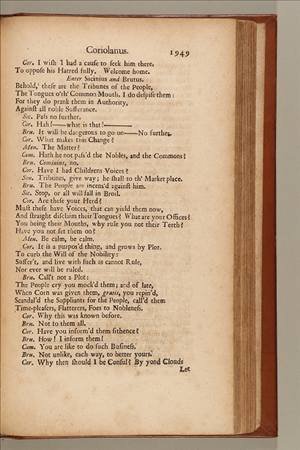 Coriolanus. 1949
Cor. I wish I had a cause to seek him there,
To oppose his Hatred fully. Welcome home.
Enter Sicinius and Brutus.
Behold, these are the Tribunes of the People,
The Tongues o'th' Common Mouth. I do despise them:
For they do prank them in Authority,
Against all noble Sufferance.
Sic. Pass no further.
Cor. Hah!——what is that!———
Bru. It will be dangerous to go on——No further.
Cor. What makes this Change?
Men. The Matter?
Com. Hath he not pass'd the Nobles, and the Commons?
Bru. Cominius, no.
Cor. Have I had Childrens Voices?
Sen. Tribunes, give way; he shall to th' Market place.
Bru. The People are incens'd against him.
Sic. Stop, or all will fall in Broil.
Cor. Are these your Herd?
Must these have Voices, that can yield them now,
And straight disclaim their Tongues? What are your Offices?
You being their Mouths, why rule you not their Teeth?
Have you not set them on?
Men. Be calm, be calm.
Cor. It is a purpos'd thing, and grows by Plot.
To curb the Will of the Nobility:
Suffer't, and live with such as cannot Rule,
Nor ever will be ruled.
Bru. Call't not a Plot:
The People cry you mock'd them; and of late,
When Corn was given them, gratis, you repin'd,
Scandal'd the Suppliants for the People, call'd them
Time-pleasers, Flatterers, Foes to Nobleness.
Cor. Why this was known before.
Bru. Not to them all.
Cor. Have you inform'd them sithence?
Bru. How! I inform them!
Com. You are like to do such Business.
Bru. Not unlike, each way, to better yours.
Cor. Why then should I be Consul? By yond Clouds
Let